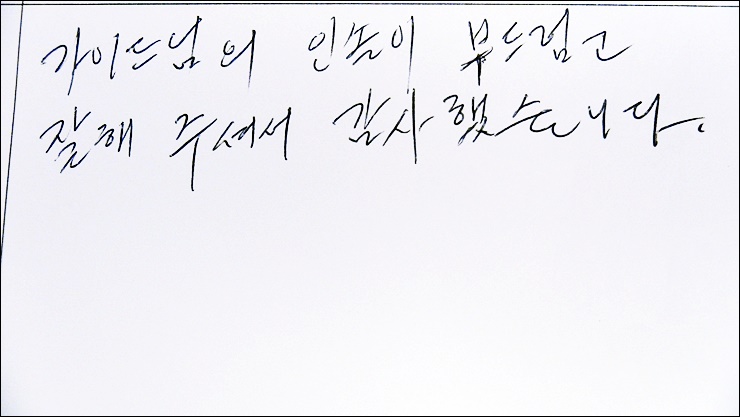 가이드님의 인솔이 부드럽고
잘해 주셔서 감사했습니다.